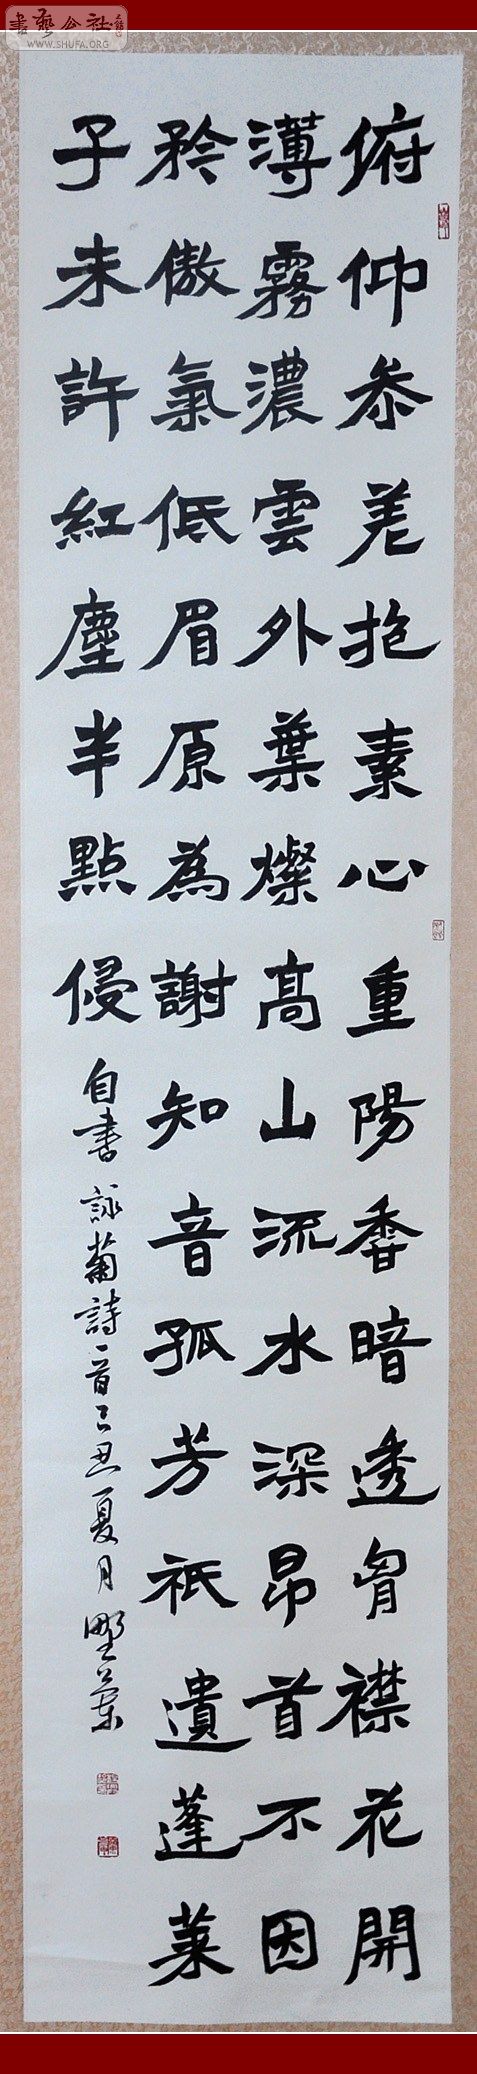 俯仰叅差抱素心重陽香暗透胷襟花開
薄霧濃雲外葉燦高山流水深昂首不因
矜傲氣低眉原為謝知音孤芳祇遺蓬萊
子未許紅塵半點侵
自書詠菊詩一首己丑夏月野蘭
書藝公社
WWW.SHUFA.ORG